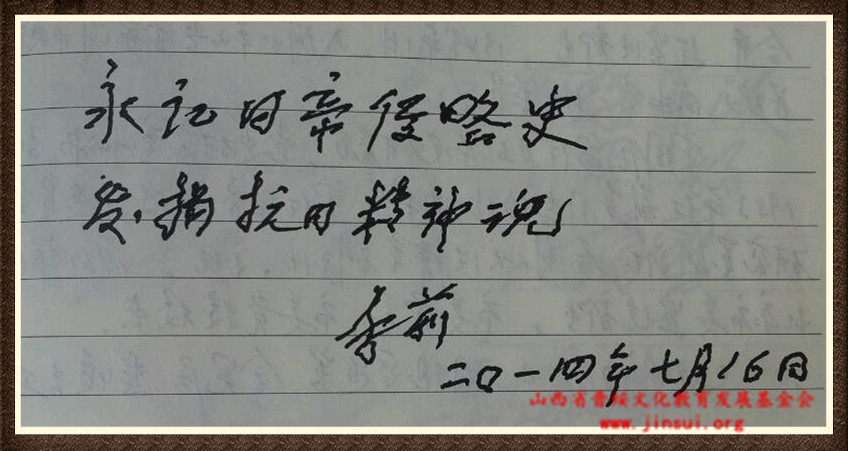 永记日帝侵略史
发扬抗日精神魂
李前
二〇一四年七月16日
山西省晋绥文化教育发展基金会
www.jinsui.org